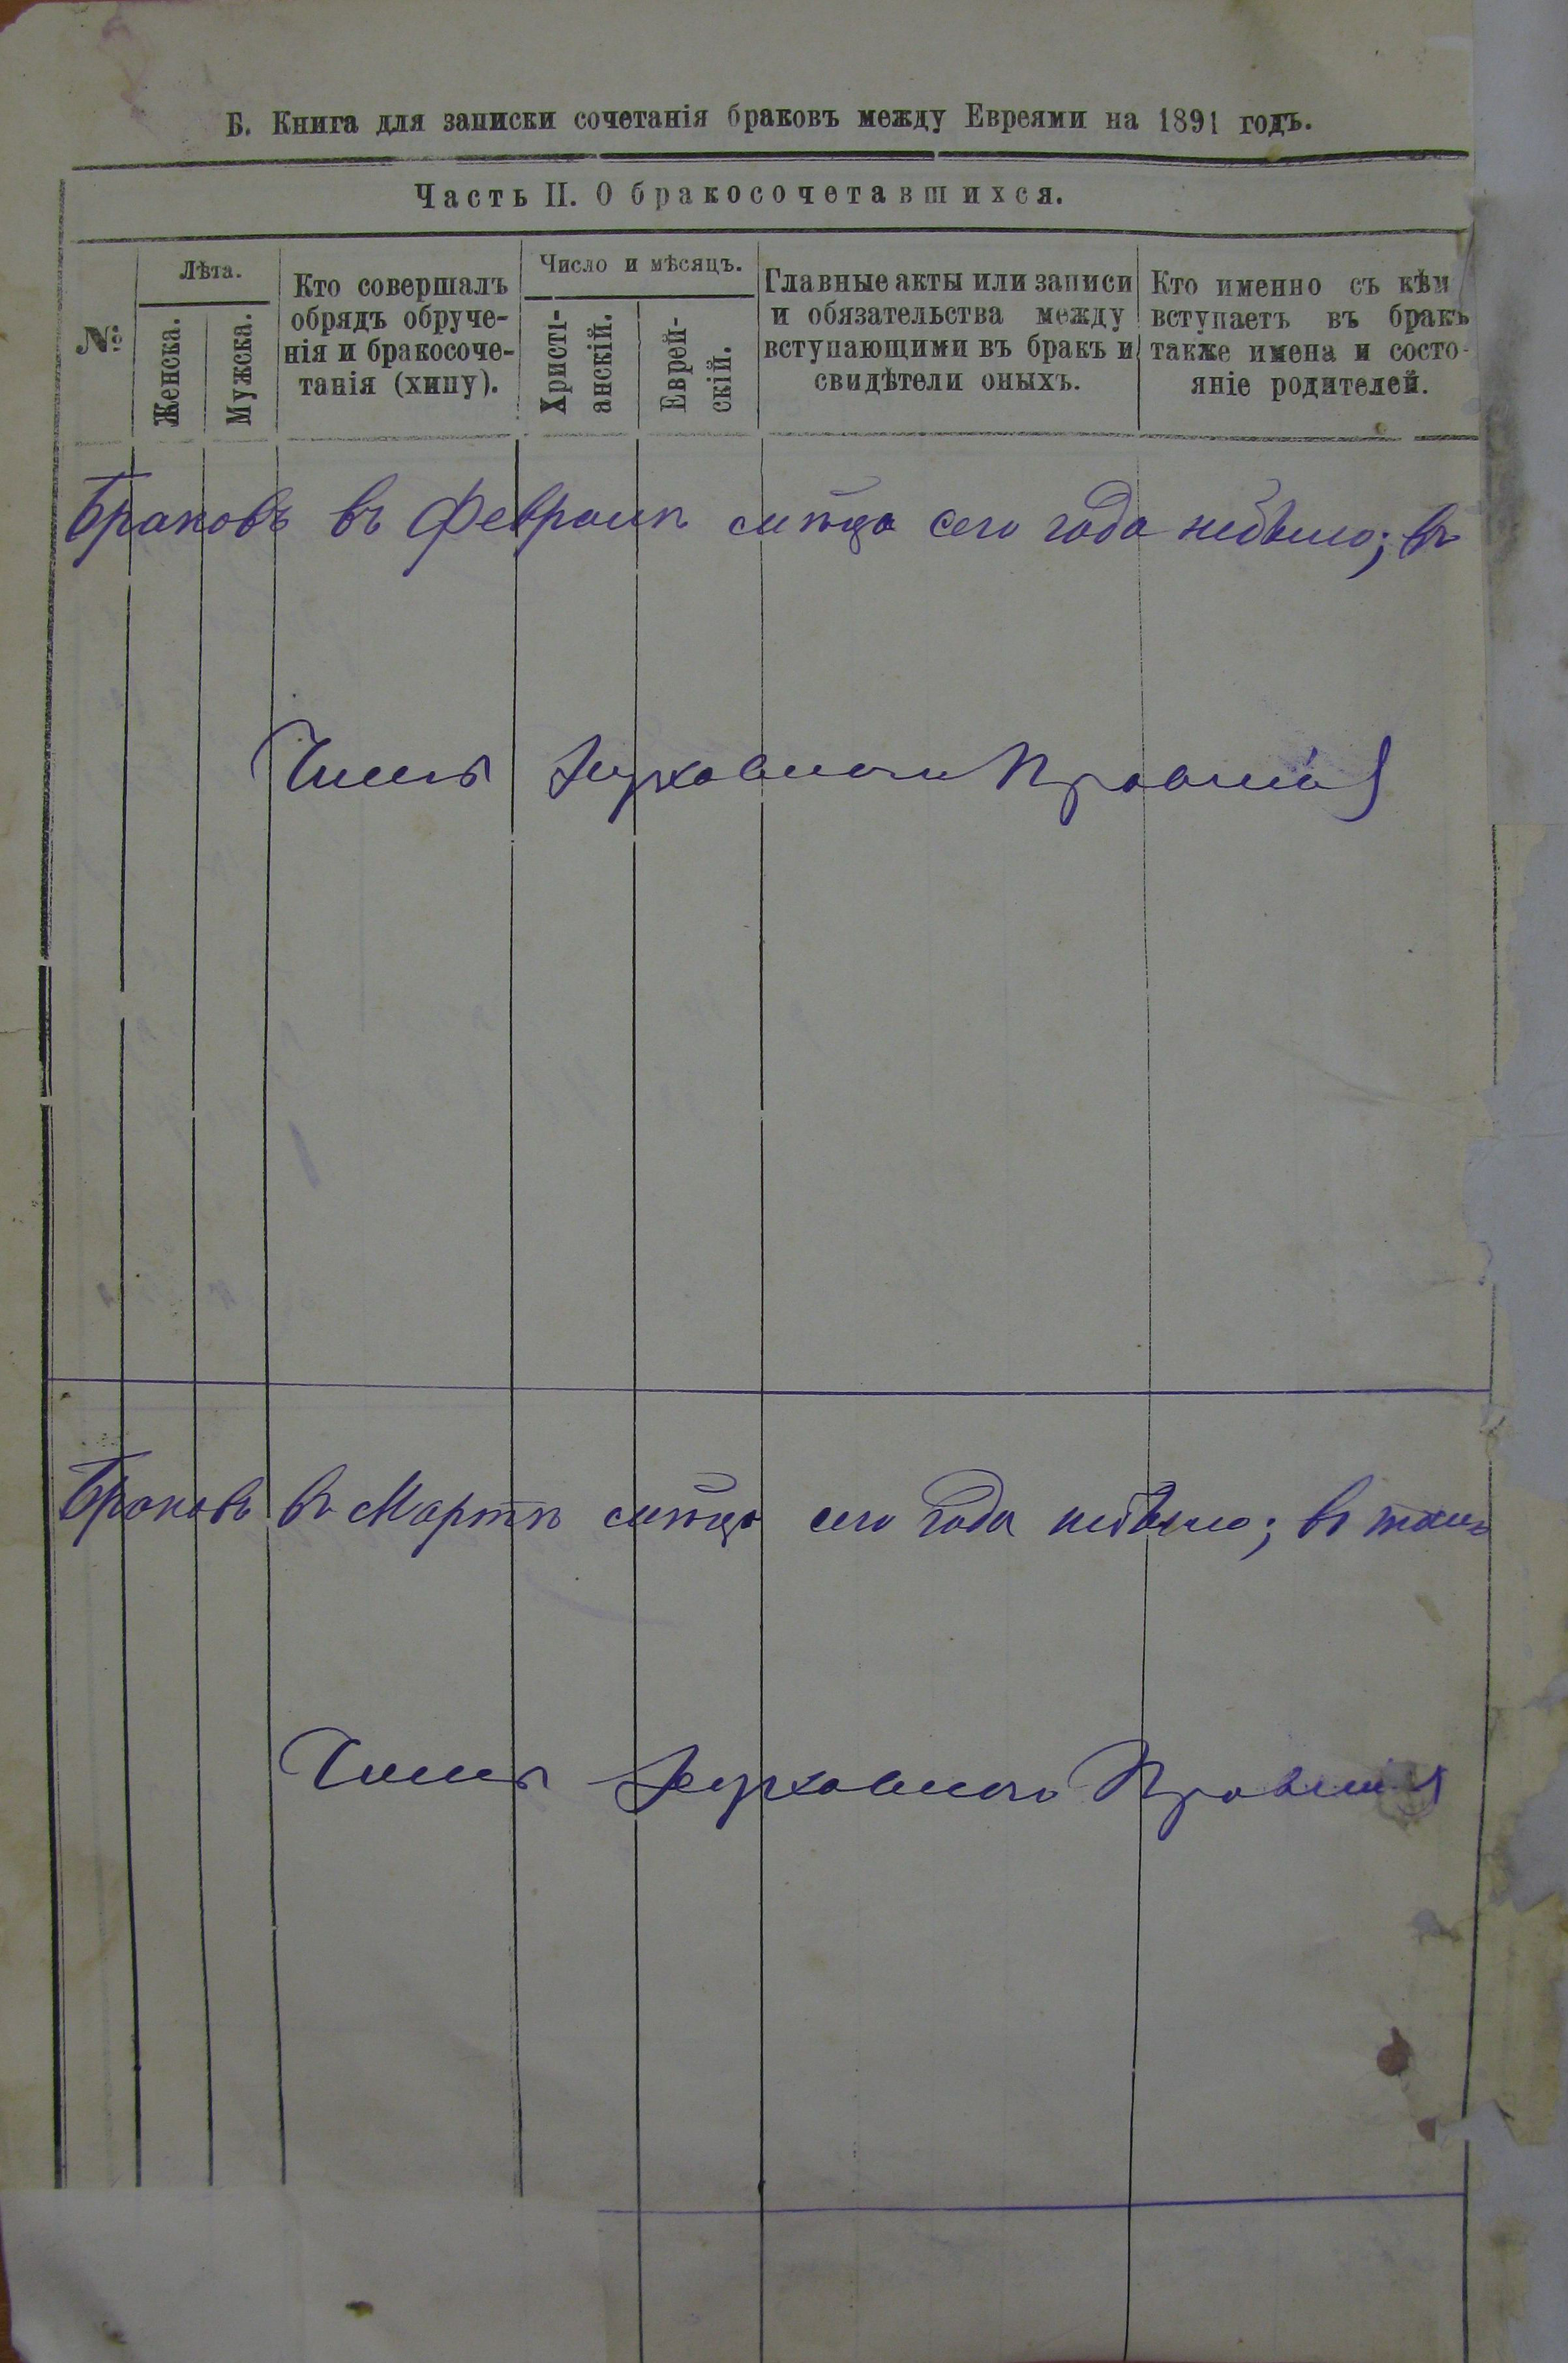 Б. Книга для записки сочетанія браковъ между Евреями на 1891 годъ.
Часть II. О бракосочетавшихся.
№
Лѣта.
Женска.
Мужска.
Кто совершалъ
обрядъ обруче-
нія и бракосоче-
танія (хипу).
Число и мѣсяцъ.
Христі-
анскій.
Еврей-
скій.
Главные акты или записи
и обязательства между
вступающими въ бракъ и
свидѣтели оныхъ.
Кто именно съ кѣм
вступаетъ въ бракъ
также имена и состо-
яніе родителей.
Браковъ въ Февралѣ мѣцѣ сего года небыло; въ
Членъ Духовного Правлнія
Браковъ въ Мартѣ мѣцѣ сего года небыло; въ томъ
Членъ Духовного Правлнія